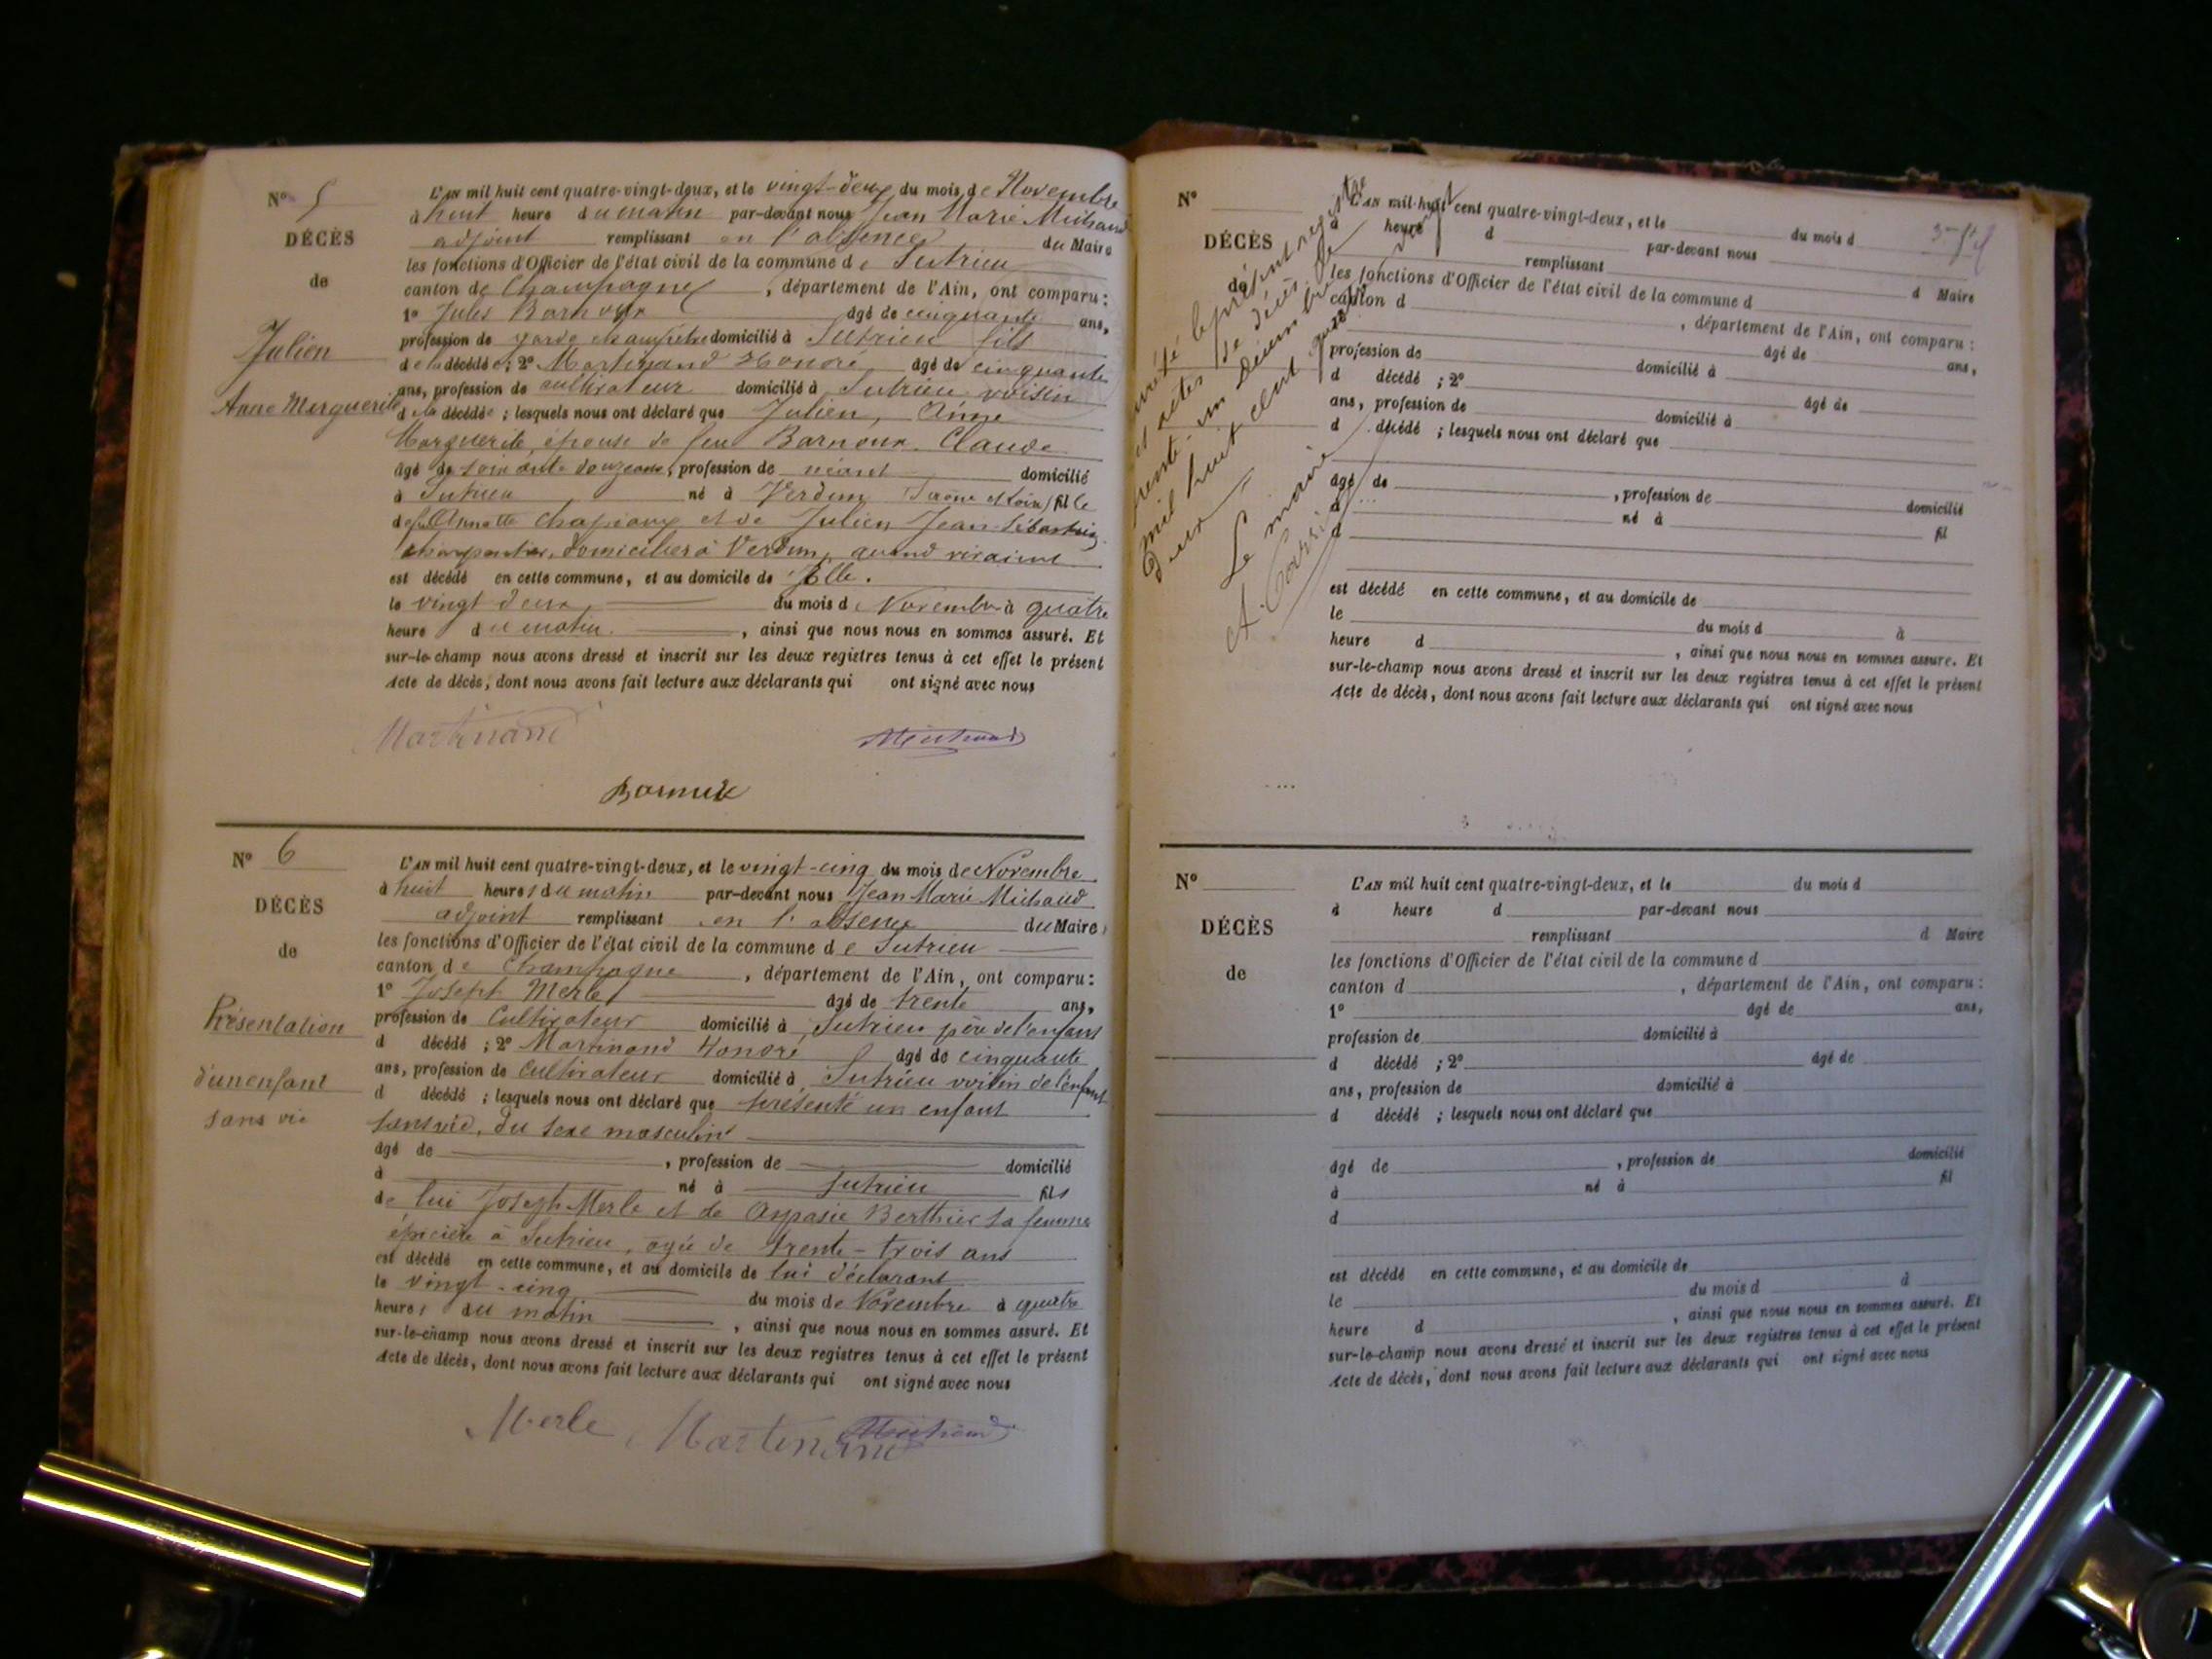 N° 5
DÉCÈS
de
Julien
Anne Marguerite
L'AN mil huit cent quatre-vingt-deux, et le vingt-deux du mois de Novembre
à huit heure du matin par-devant nous Jean Marie Michaud
adjoint remplissant en l'absence du Maire
les fonctions d'Officier de l'état civil de la commune de Sutrieu
canton de Champagne, département de l'Ain, ont comparu :
1° Jules Barnoux âgé de cinquante ans,
profession de garde champêtre domicilié à Sutrieu fils
de la décédée ; 2° Martinand Honoré âgé de cinquante
ans, profession de cultivateur domicilié à Sutrieu voisin
de la décédée ; lesquels nous ont déclaré que Julien, Anne
Marguerite, épouse de feu Barnoux Claude
âgé de soixante douze ans, profession de néant domicilié
à Sutrieu né à Verdun (Saône et Loire) fille
de feu Annette Chapioux et de Julien Jean-Sébastien
charpentier, domiciliés à Verdun, quand vivaient
est décédé en cette commune, et au domicile de Elle.
le vingt deux du mois de Novembre à quatre
heure du matin, ainsi que nous nous en sommes assuré. Et
sur-le-champ nous avons dressé et inscrit sur les deux registres tenus à cet effet le présent
Acte de décès, dont nous avons fait lecture aux déclarants qui ont signé avec nous
Martinand Michaud
Barnoux
N° 6
DÉCÈS
de
Présentation
d'un enfant
sans vie
L'AN mil huit cent quatre-vingt-deux, et le vingt-cinq du mois de Novembre
à huit heures du matin par-devant nous Jean Marie Michaud
adjoint remplissant en l'absence du Maire
les fonctions d'Officier de l'état civil de la commune de Sutrieu
canton de Champagne, département de l'Ain, ont comparu :
1° Joseph Merle âgé de trente ans,
profession de Cultivateur domicilié à Sutrieu père de l'enfant
d décédé ; 2° Martinand Honoré âgé de cinquante
ans, profession de Cultivateur domicilié à Sutrieu voisin de l'enfant
d décédé ; lesquels nous ont déclaré que présenté un enfant
sans vie, du sexe masculin
âgé de , profession de domicilié
à né à Sutrieu fils
de lui Joseph Merle et de Aspasie Berthier sa femme
épicière à Sutrieu, agée de trente-trois ans
est décédé en cette commune, et au domicile de lui déclarant
le vingt-cinq du mois de Novembre à quatre
heures du matin, ainsi que nous nous en sommes assuré. Et
sur-le-champ nous avons dressé et inscrit sur les deux registres tenus à cet effet le présent
Acte de décès, dont nous avons fait lecture aux déclarants qui ont signé avec nous
Merle Martinand Michaud
N°
DÉCÈS
de
L'AN mil huit cent quatre-vingt-deux, et le du mois d
à heure d par-devant nous
remplissant d Maire
les fonctions d'Officier de l'état civil de la commune d
canton d , département de l'Ain, ont comparu :
âgé de ans,
profession de domicilié à
d décédé ; 2° âgé de
ans, profession de domicilié à
d décédé ; lesquels nous ont déclaré que
âgé de , profession de domicilié
à né à fil
d
est décédé en cette commune, et au domicile de
le du mois d à
heure d , ainsi que nous nous en sommes assuré. Et
sur-le-champ nous avons dressé et inscrit sur les deux registres tenus à cet effet le présent
Acte de décès, dont nous avons fait lecture aux déclarants qui ont signé avec nous
arrêté le présent registre
des actes de décès le
trente un décembre
mil huit cent quatre vingt
deux
Le maire
N°
DÉCÈS
de
L'AN mil huit cent quatre-vingt-deux, et le du mois d
à heure d par-devant nous
remplissant d Maire
les fonctions d'Officier de l'état civil de la commune d
canton d , département de l'Ain, ont comparu :
1° âgé de ans,
profession de domicilié à
d décédé ; 2° âgé de
ans, profession de domicilié à
d décédé ; lesquels nous ont déclaré que
âgé de , profession de domicilié
à né à fil
d
est décédé en cette commune, et au domicile de
le du mois d à
heure d , ainsi que nous nous en sommes assuré. Et
sur-le-champ nous avons dressé et inscrit sur les deux registres tenus à cet effet le présent
Acte de décès, dont nous avons fait lecture aux déclarants qui ont signé avec nous